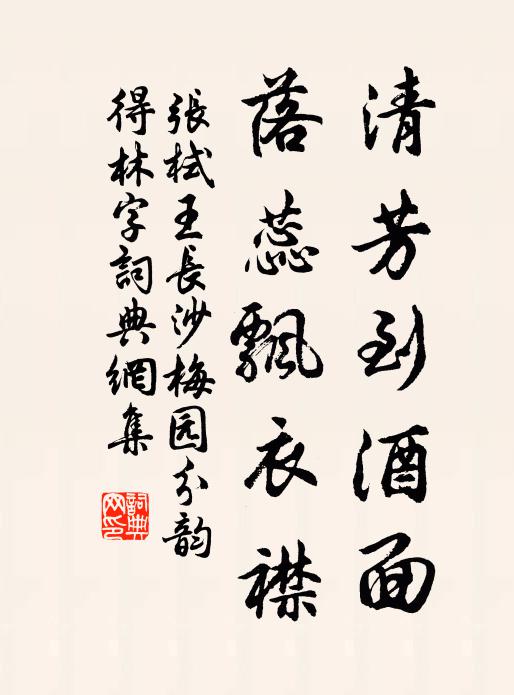 清芳到酒面
落蕊飄衣襟
張栻王長沙梅园分韵
得林字詞典網集
詞典网印